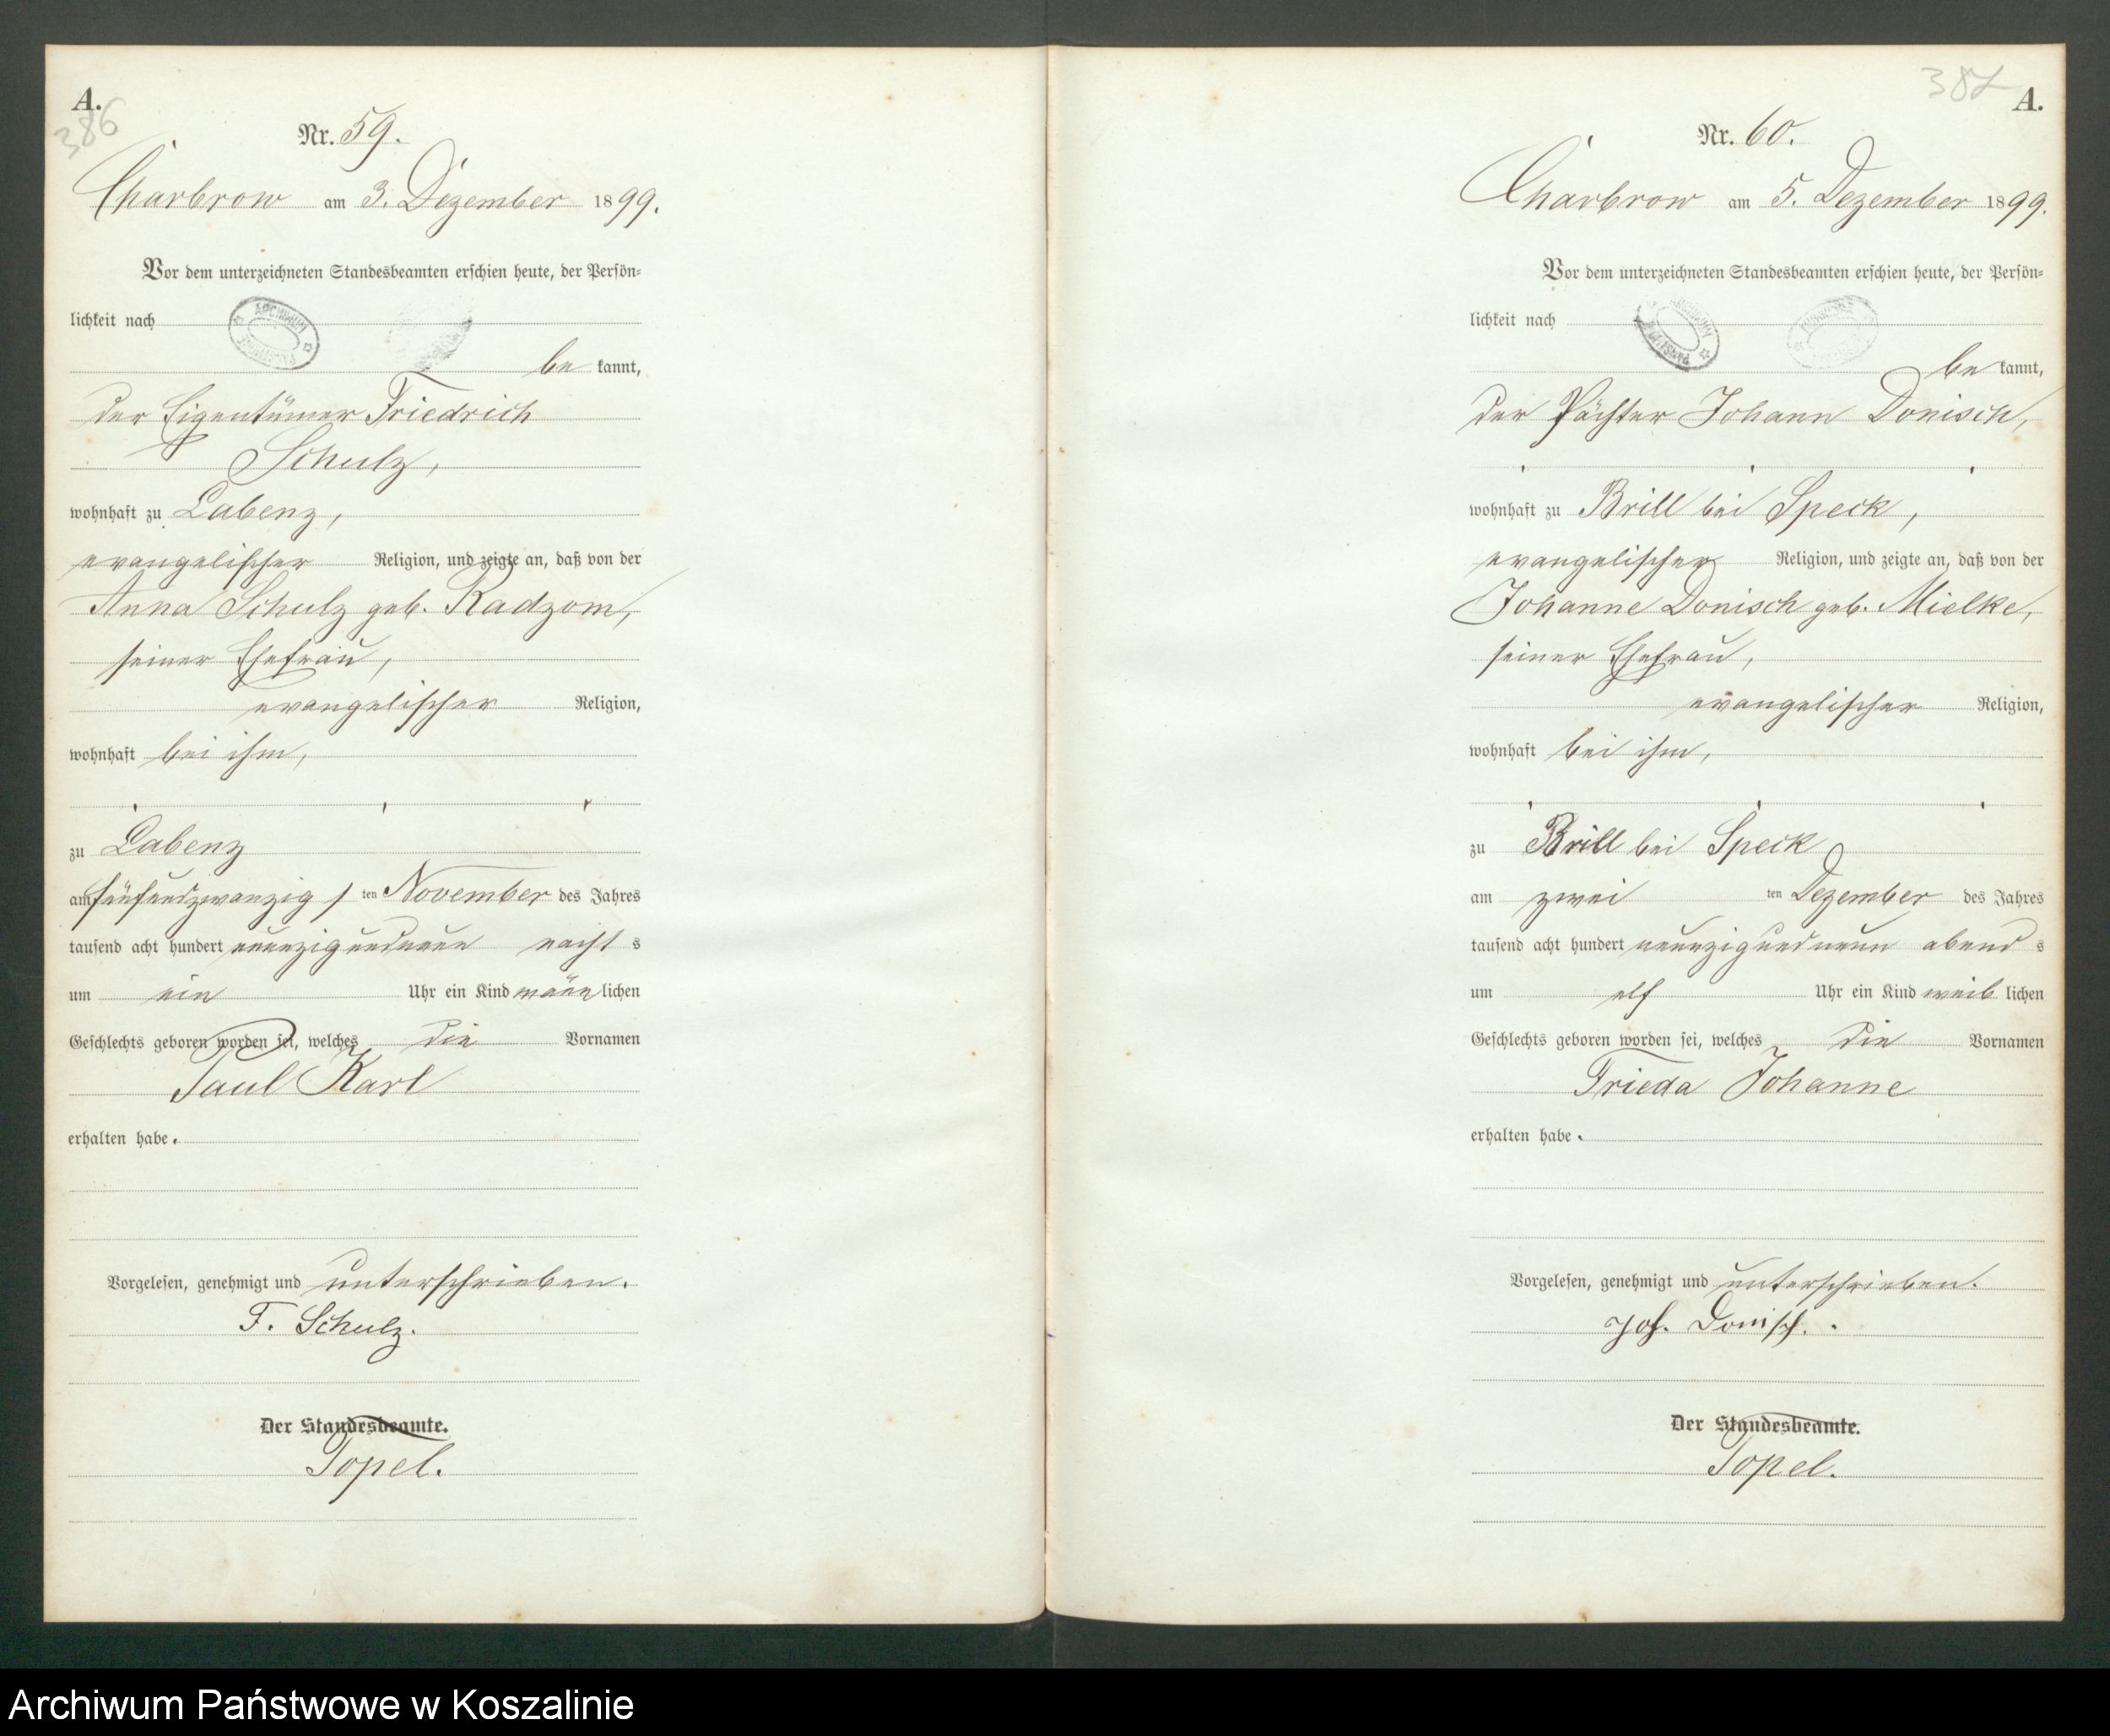 A.
386
Nr. 59.
Charbrow am 3. Dezember 1899.
Vor dem unterzeichneten Standesbeamten erschien heute, der Persön-
lichkeit nach
ARCHIWUM
be kannt,
der Eigentümer Friedrich
Schulz,
wohnhaft zu Labenz,
evangelischer Religion, und zeigte an, daß von der
Anna Schulz geb. Radzom,
seiner Ehefrau,
evangelischer Religion,
wohnhaft bei ihm,
zu Labenz
am fünfundzwanzig ten November des Jahres
tausend acht hundert neunzigundneun nacht s
um ein Uhr ein Kind männ lichen
Geschlechts geboren worden sei, welches die Vornamen
Paul Karl
erhalten habe.
Vorgelesen, genehmigt und unterschrieben.
F. Schulz.
Der Standesbeamte.
Topel.
387
A.
Nr. 60.
Charbrow am 5. Dezember 1899.
Vor dem unterzeichneten Standesbeamten erschien heute, der Persön-
lichkeit nach
be kannt,
der Pächter Johann Donisch,
wohnhaft zu Brill bei Speck,
evangelischer Religion, und zeigte an, daß von der
Johanne Donisch geb. Mielke,
seiner Ehefrau,
evangelischer Religion,
wohnhaft bei ihm,
zu Brill bei Speck
am zwei ten Dezember des Jahres
tausend acht hundert neunzigundneun abend s
um elf Uhr ein Kind weib lichen
Geschlechts geboren worden sei, welches die Vornamen
Frieda Johanne
erhalten habe.
Vorgelesen, genehmigt und unterschrieben.
Joh. Donisch.
Der Standesbeamte.
Topel.
Archiwum Państwowe w Koszalinie